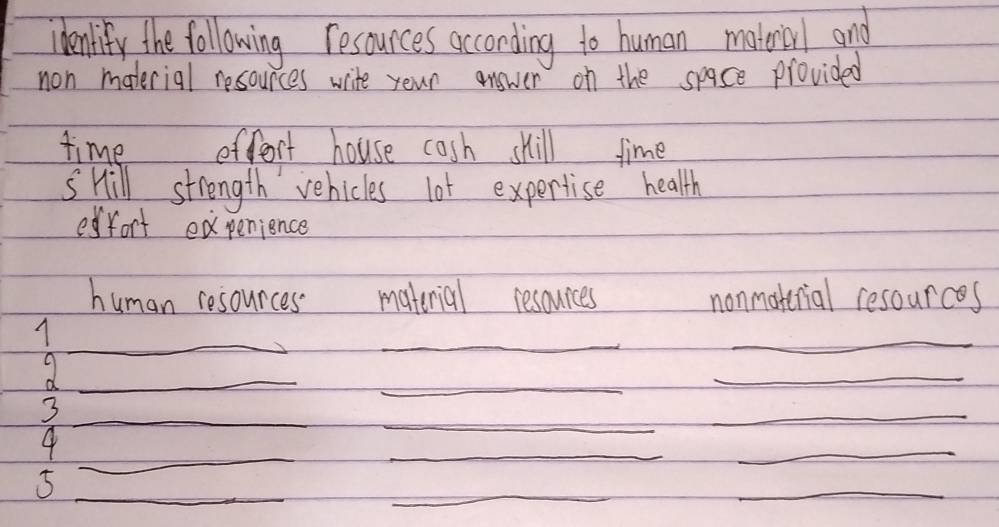 identify the following resources according to human material and
non material resources write your answer on the space provided
time effort house cash skill time
skill strength vehicles lot expertise health
effort experience
human resources material resources nonmaterial resources
1
2
3
4
5